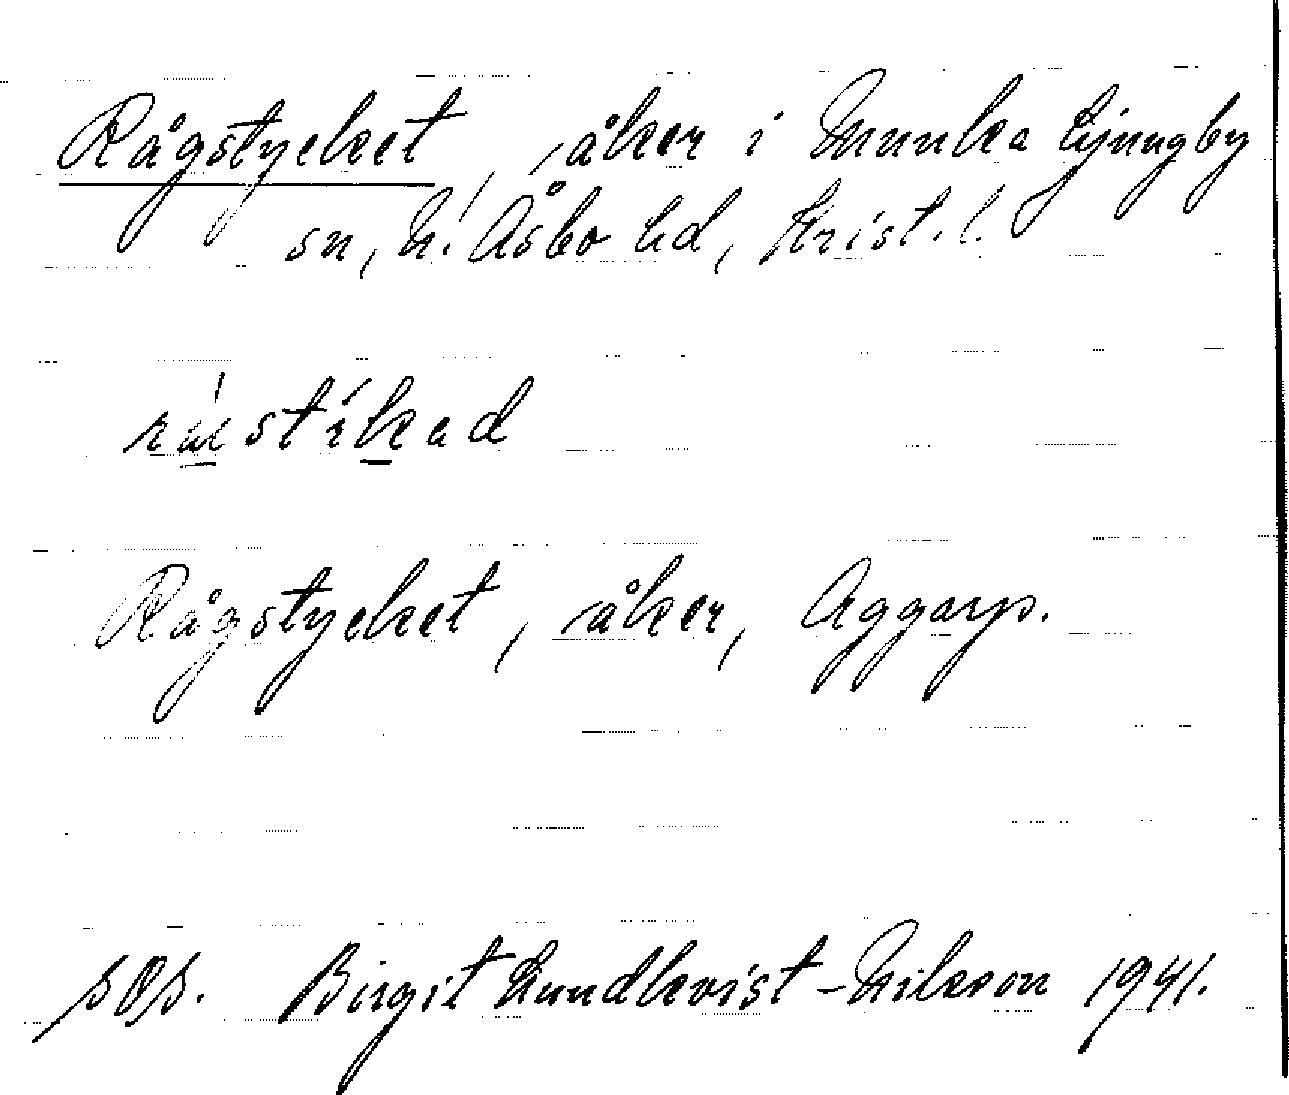 Rågstycket, åker i Munka Ljungby
sn, N. Åsbo hd, Krist. l.
Rågstycket, åker, Aggarp.
SOS. Birgit Lundkvist-Nilsson 1941.